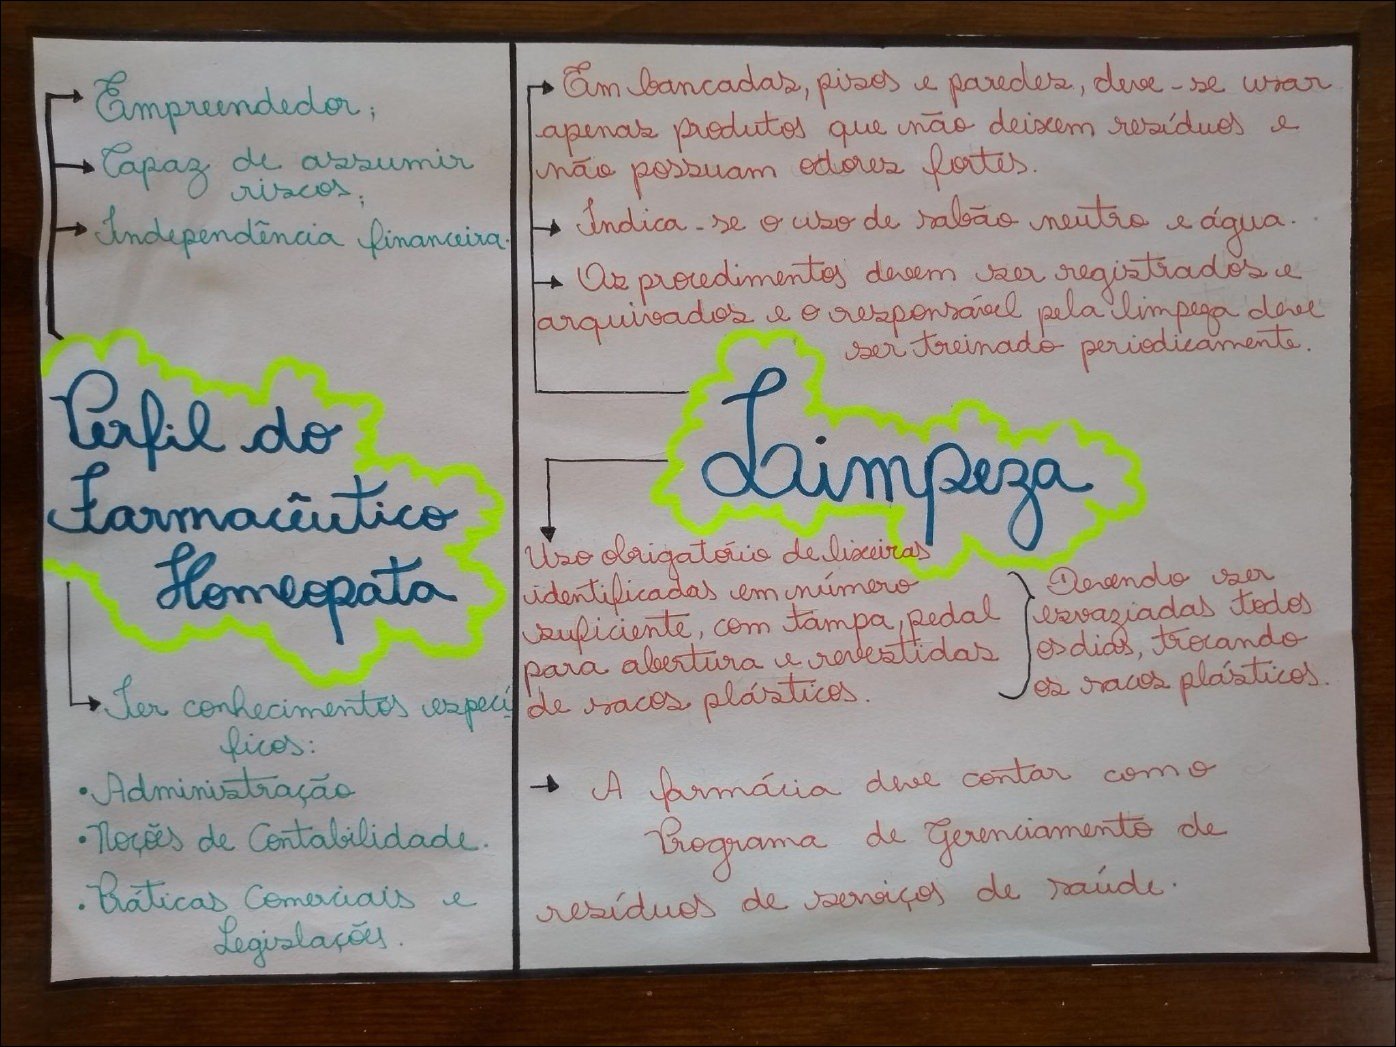 Empreendedor;
Capaz de assumir
riscos;
Independência financeira.
Perfil do
Farmacêutico
Homeopata
Ter conhecimentos especí
ficos:
• Administração
• Noções de Contabilidade.
• Práticas Comerciais e
Legislações.
Em bancadas, pisos e paredes, deve-se usar
apenas produtos que não deixem resíduos e
não possuam odores fortes.
Indica-se o uso de sabão neutro e água.
Os procedimentos devem ser registrados e
arquivados e o responsável pela limpeza deve
ser treinado periodicamente.
Limpeza
Uso obrigatório de lixeiras
identificadas em número
suficiente, com tampa, pedal
para abertura e revestidas
de sacos plásticos.
Devendo ser
esvaziadas todos
os dias, trocando
os sacos plásticos.
A farmácia deve contar com o
Programa de Gerenciamento de
resíduos de serviços de saúde.